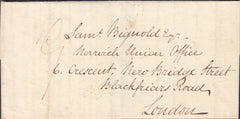 Saml Bignold Esqr
Norwich Union Office
6. Crescent, New Bridge Street
Blackfriars Road
London